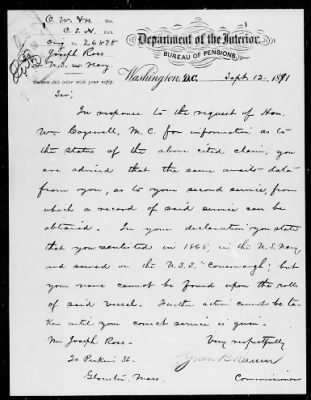 Department of the Interior,
BUREAU OF PENSIONS,
Washington, D.C. Sept. 12, 1891
O. W. Div.
C. S. N.
Orig 26878
Joseph Ross
U.S. Navy
Return this letter with your reply.
Sir,
In response to the request of Hon.
Wm Cogswell, M.C. for information as to
the status of the above cited claim, you
are advised that the same awaits data
from you, as to your second service, from
which a record of said service can be
obtained. In your declaration you state
that you reenlisted in 1865, in the U.S. Navy,
and served on the U.S.S. "Conemaugh; but
your name cannot be found upon the rolls
of said vessel. Further action cannot be ta-
ken until you correct service is given.
Mr Joseph Ross
Very respectfully
20 Perkins St.
Green B Raum
Gloucester, Mass.
Commissioner